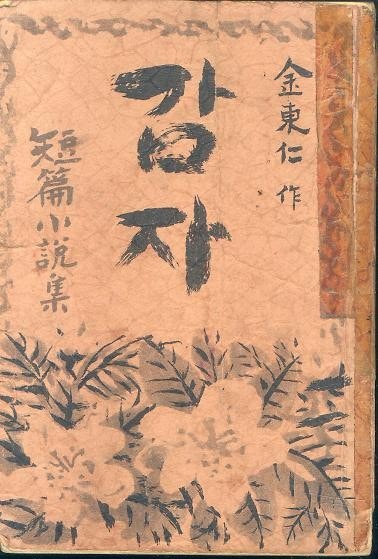 金東仁 作
감자
短篇小說集